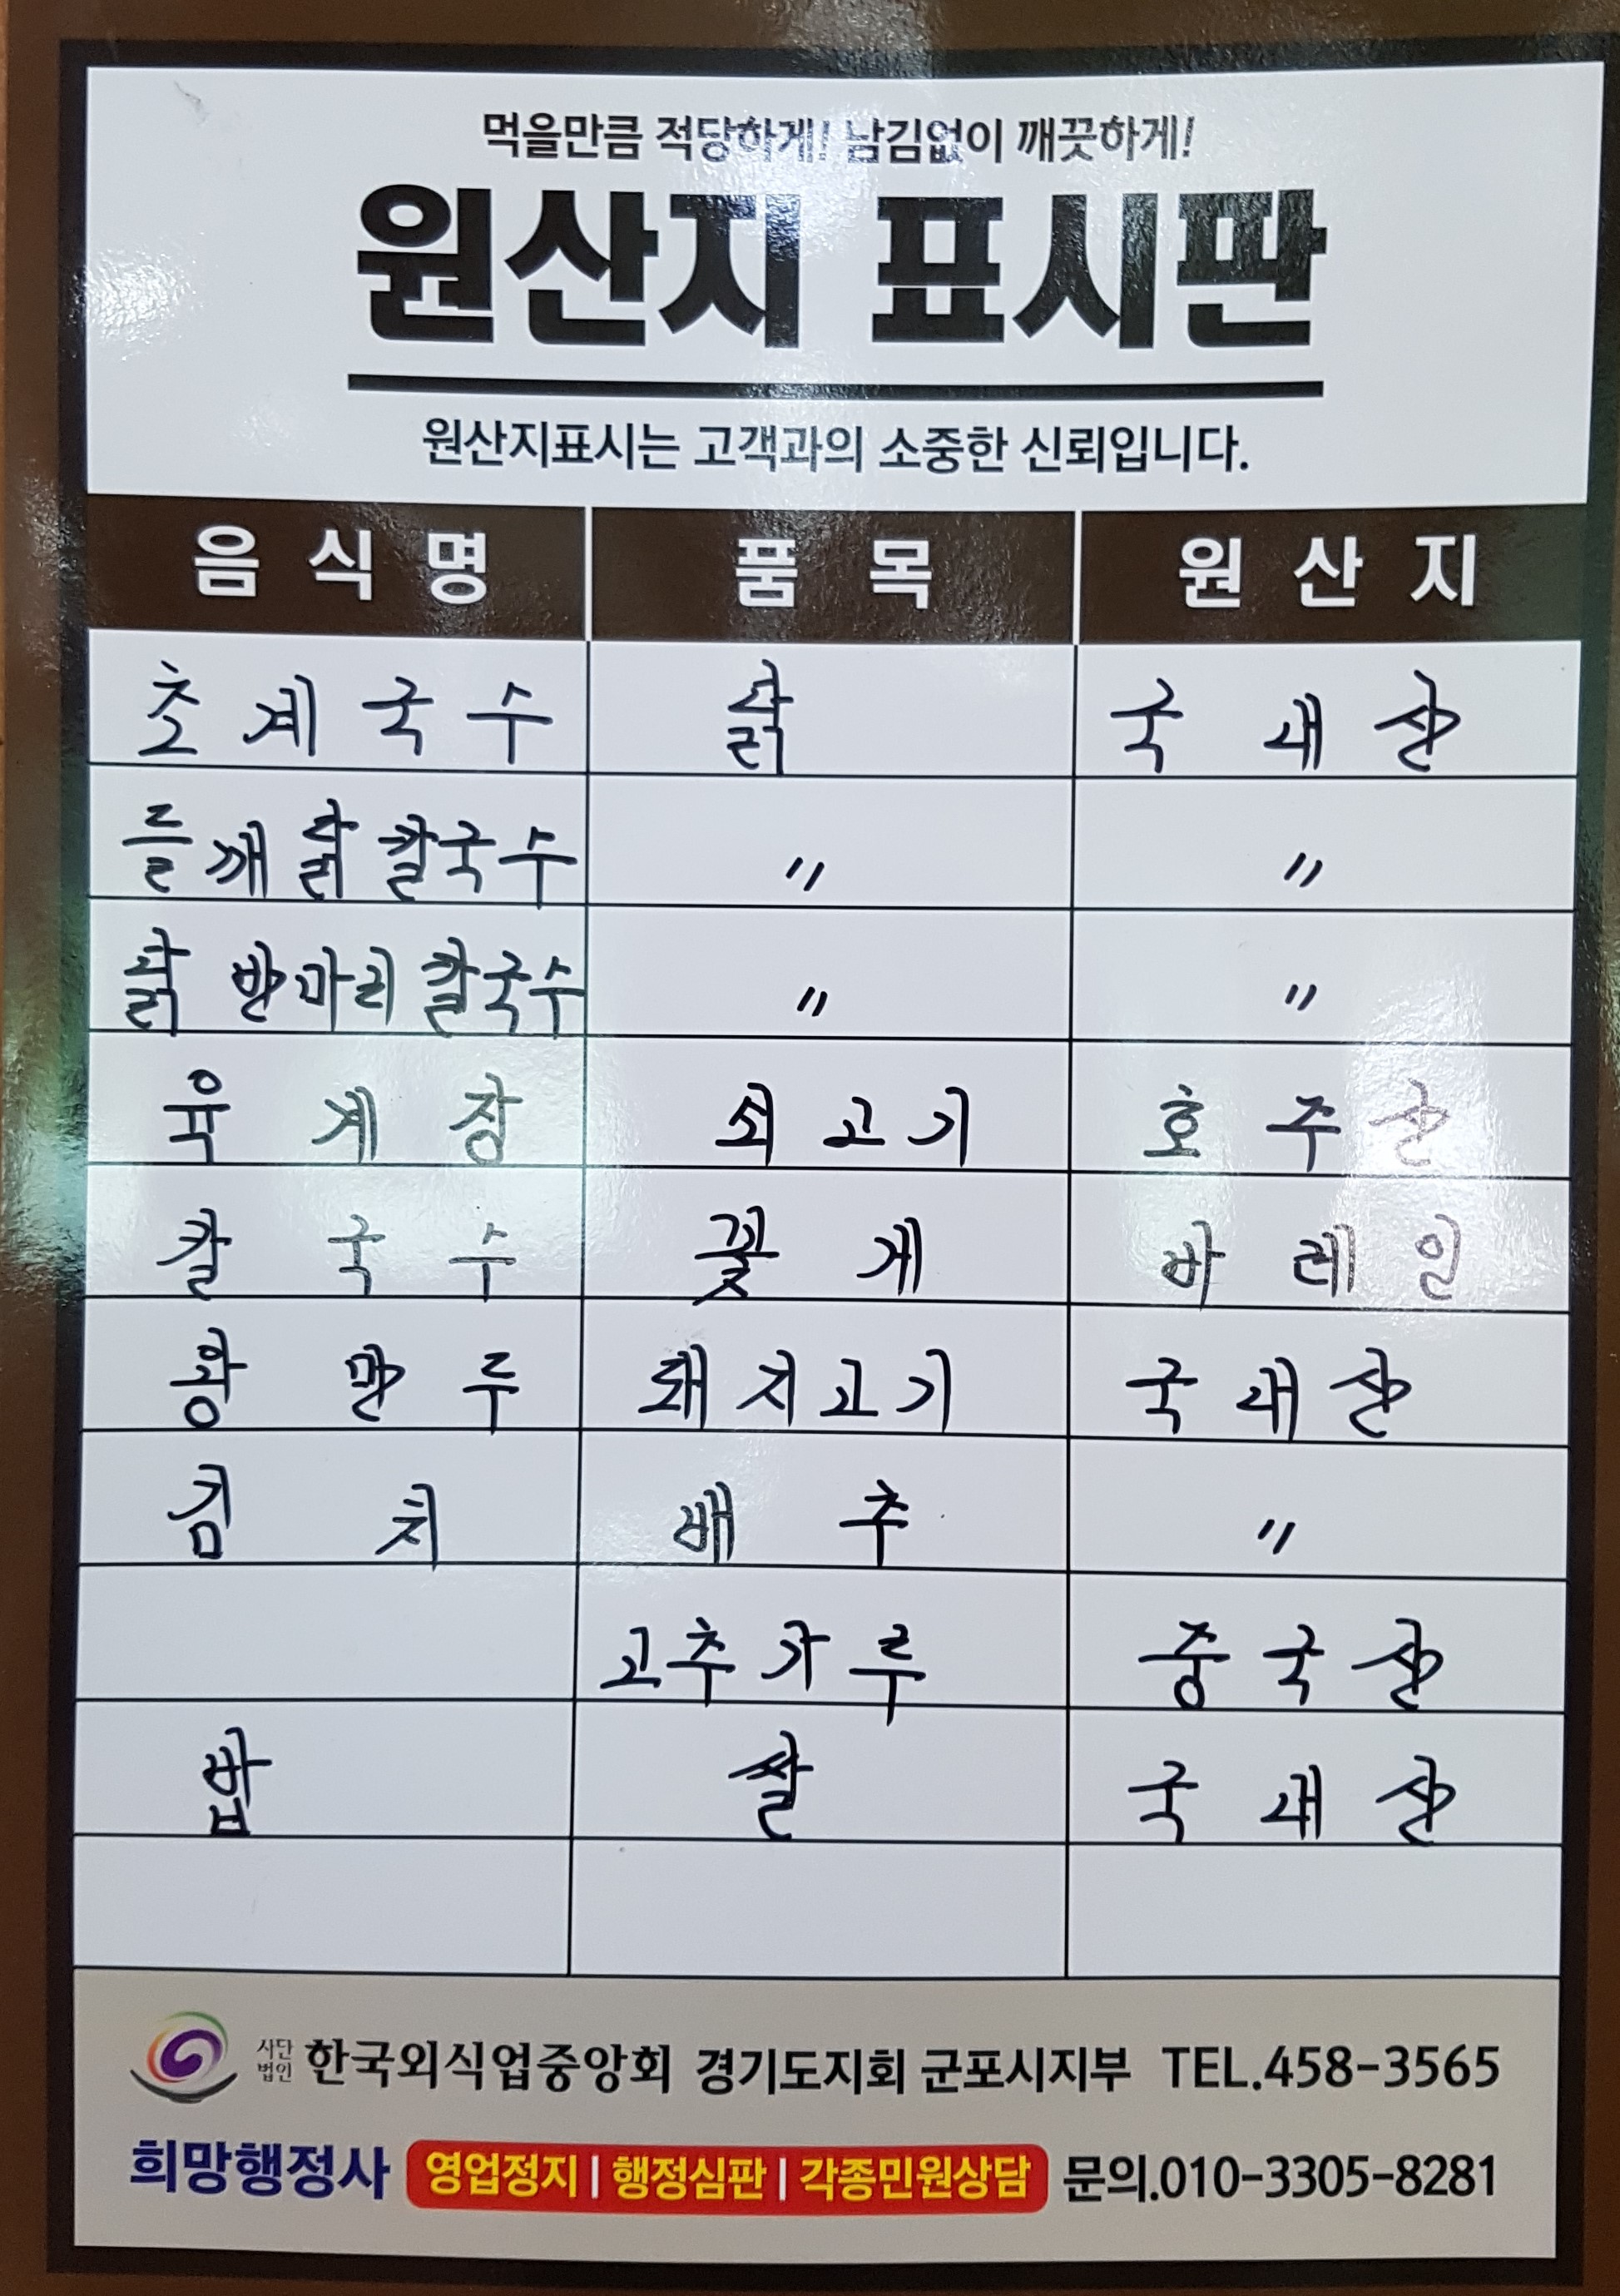 먹을만큼 적당하게! 남김없이 깨끗하게!
원산지 표시판
원산지표시는 고객과의 소중한 신뢰입니다.
음식명 품목 원산지
초계국수 닭 국내산
들깨닭칼국수 〃 〃
닭 반마리칼국수 〃 〃
육계장 쇠고기 호주산
칼국수 꽃게 바레인
왕만두 돼지고기 국내산
김치 배추 〃
고추가루 중국산
밥 쌀 국내산
사단법인 한국외식업중앙회 경기도지회 군포시지부 TEL.458-3565
희망행정사 영업정지 | 행정심판 | 각종민원상담 문의.010-3305-8281